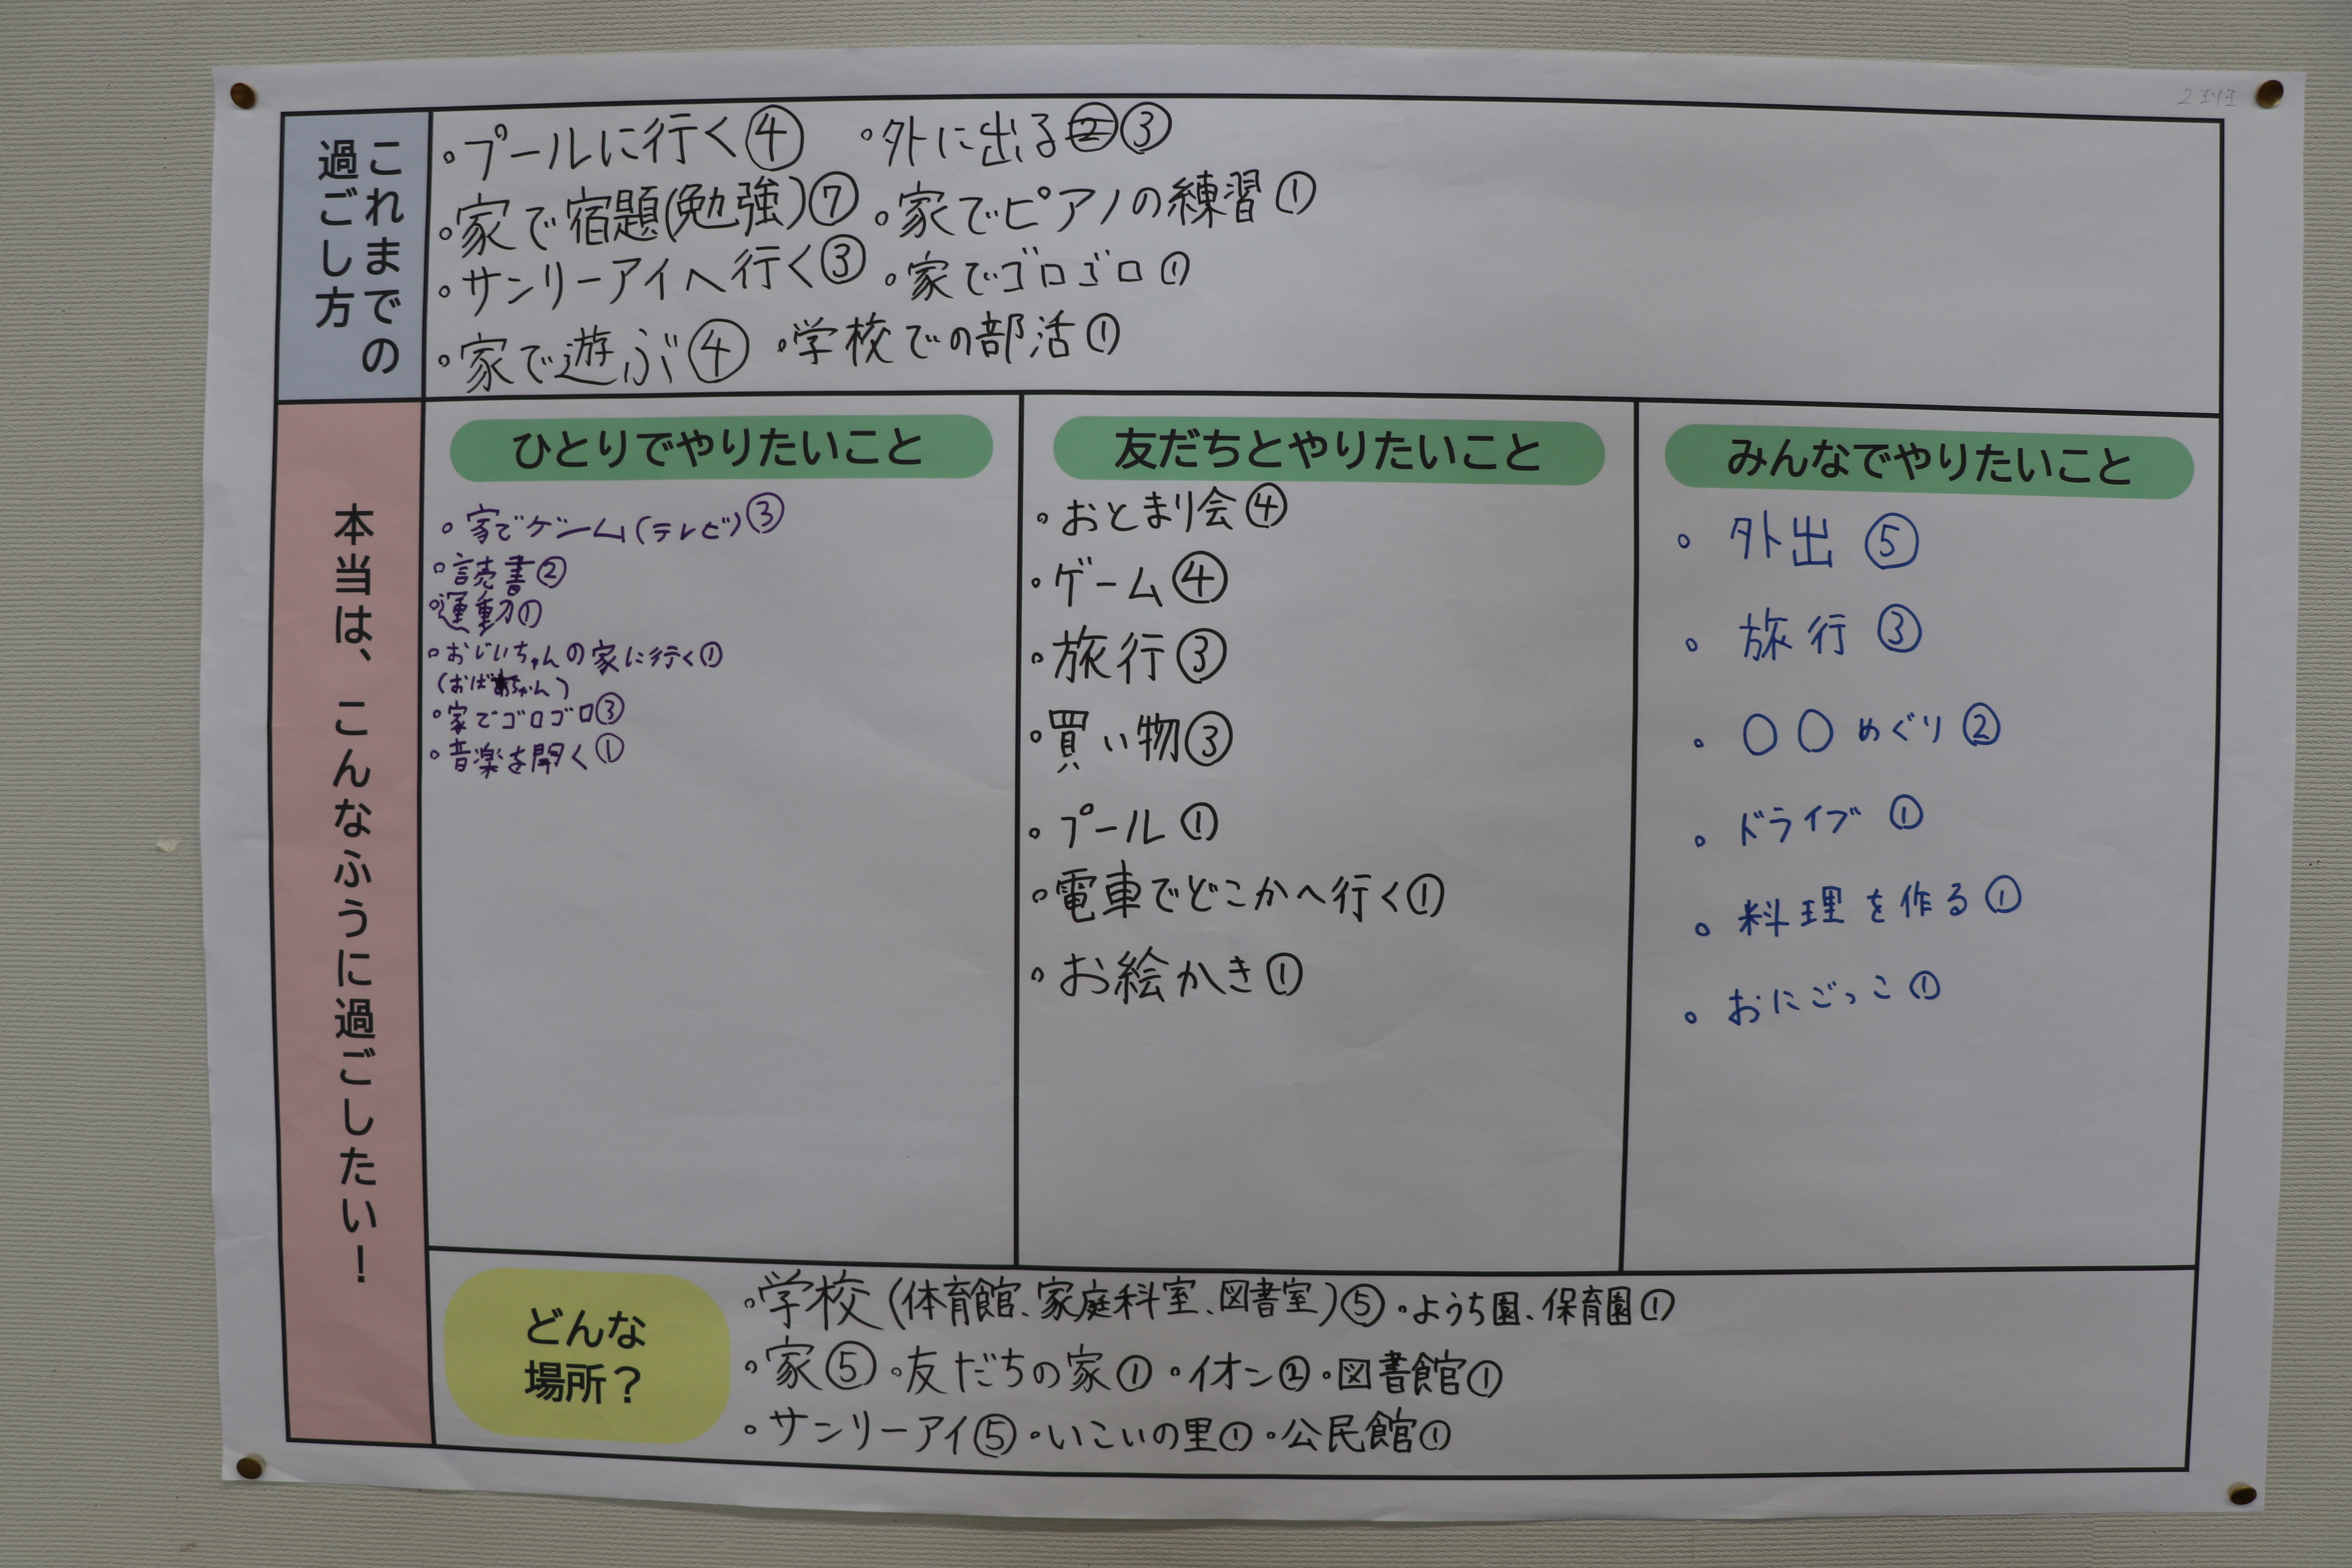 2班
これまでの
過ごし方
。プールに行く④ 。外に出る②③
。家で宿題(勉強)⑦ 。家でピアノの練習①
。サンリーアイへ行く③ 。家でゴロゴロ①
。家で遊ぶ④ 。学校での部活①
本当は、こんなふうに過ごしたい!
ひとりでやりたいこと
。家でゲーム(テレビ)③
。読書②
。運動①
。おじいちゃんの家に行く①
(おばあちゃん)
。家でゴロゴロ③
。音楽を聞く①
友だちとやりたいこと
。おとまり会④
。ゲーム④
。旅行③
。買い物③
。プール①
。電車でどこかへ行く①
。お絵かき①
みんなでやりたいこと
。外出⑤
。旅行③
。〇〇めぐり②
。ドライブ①
。料理を作る①
。おにごっこ①
どんな
場所?
。学校(体育館、家庭科室、図書室)⑤ 。ようち園、保育園①
。家⑤ 。友だちの家① 。イオン② 。図書館①
。サンリーアイ⑤ 。いこいの里① 。公民館①